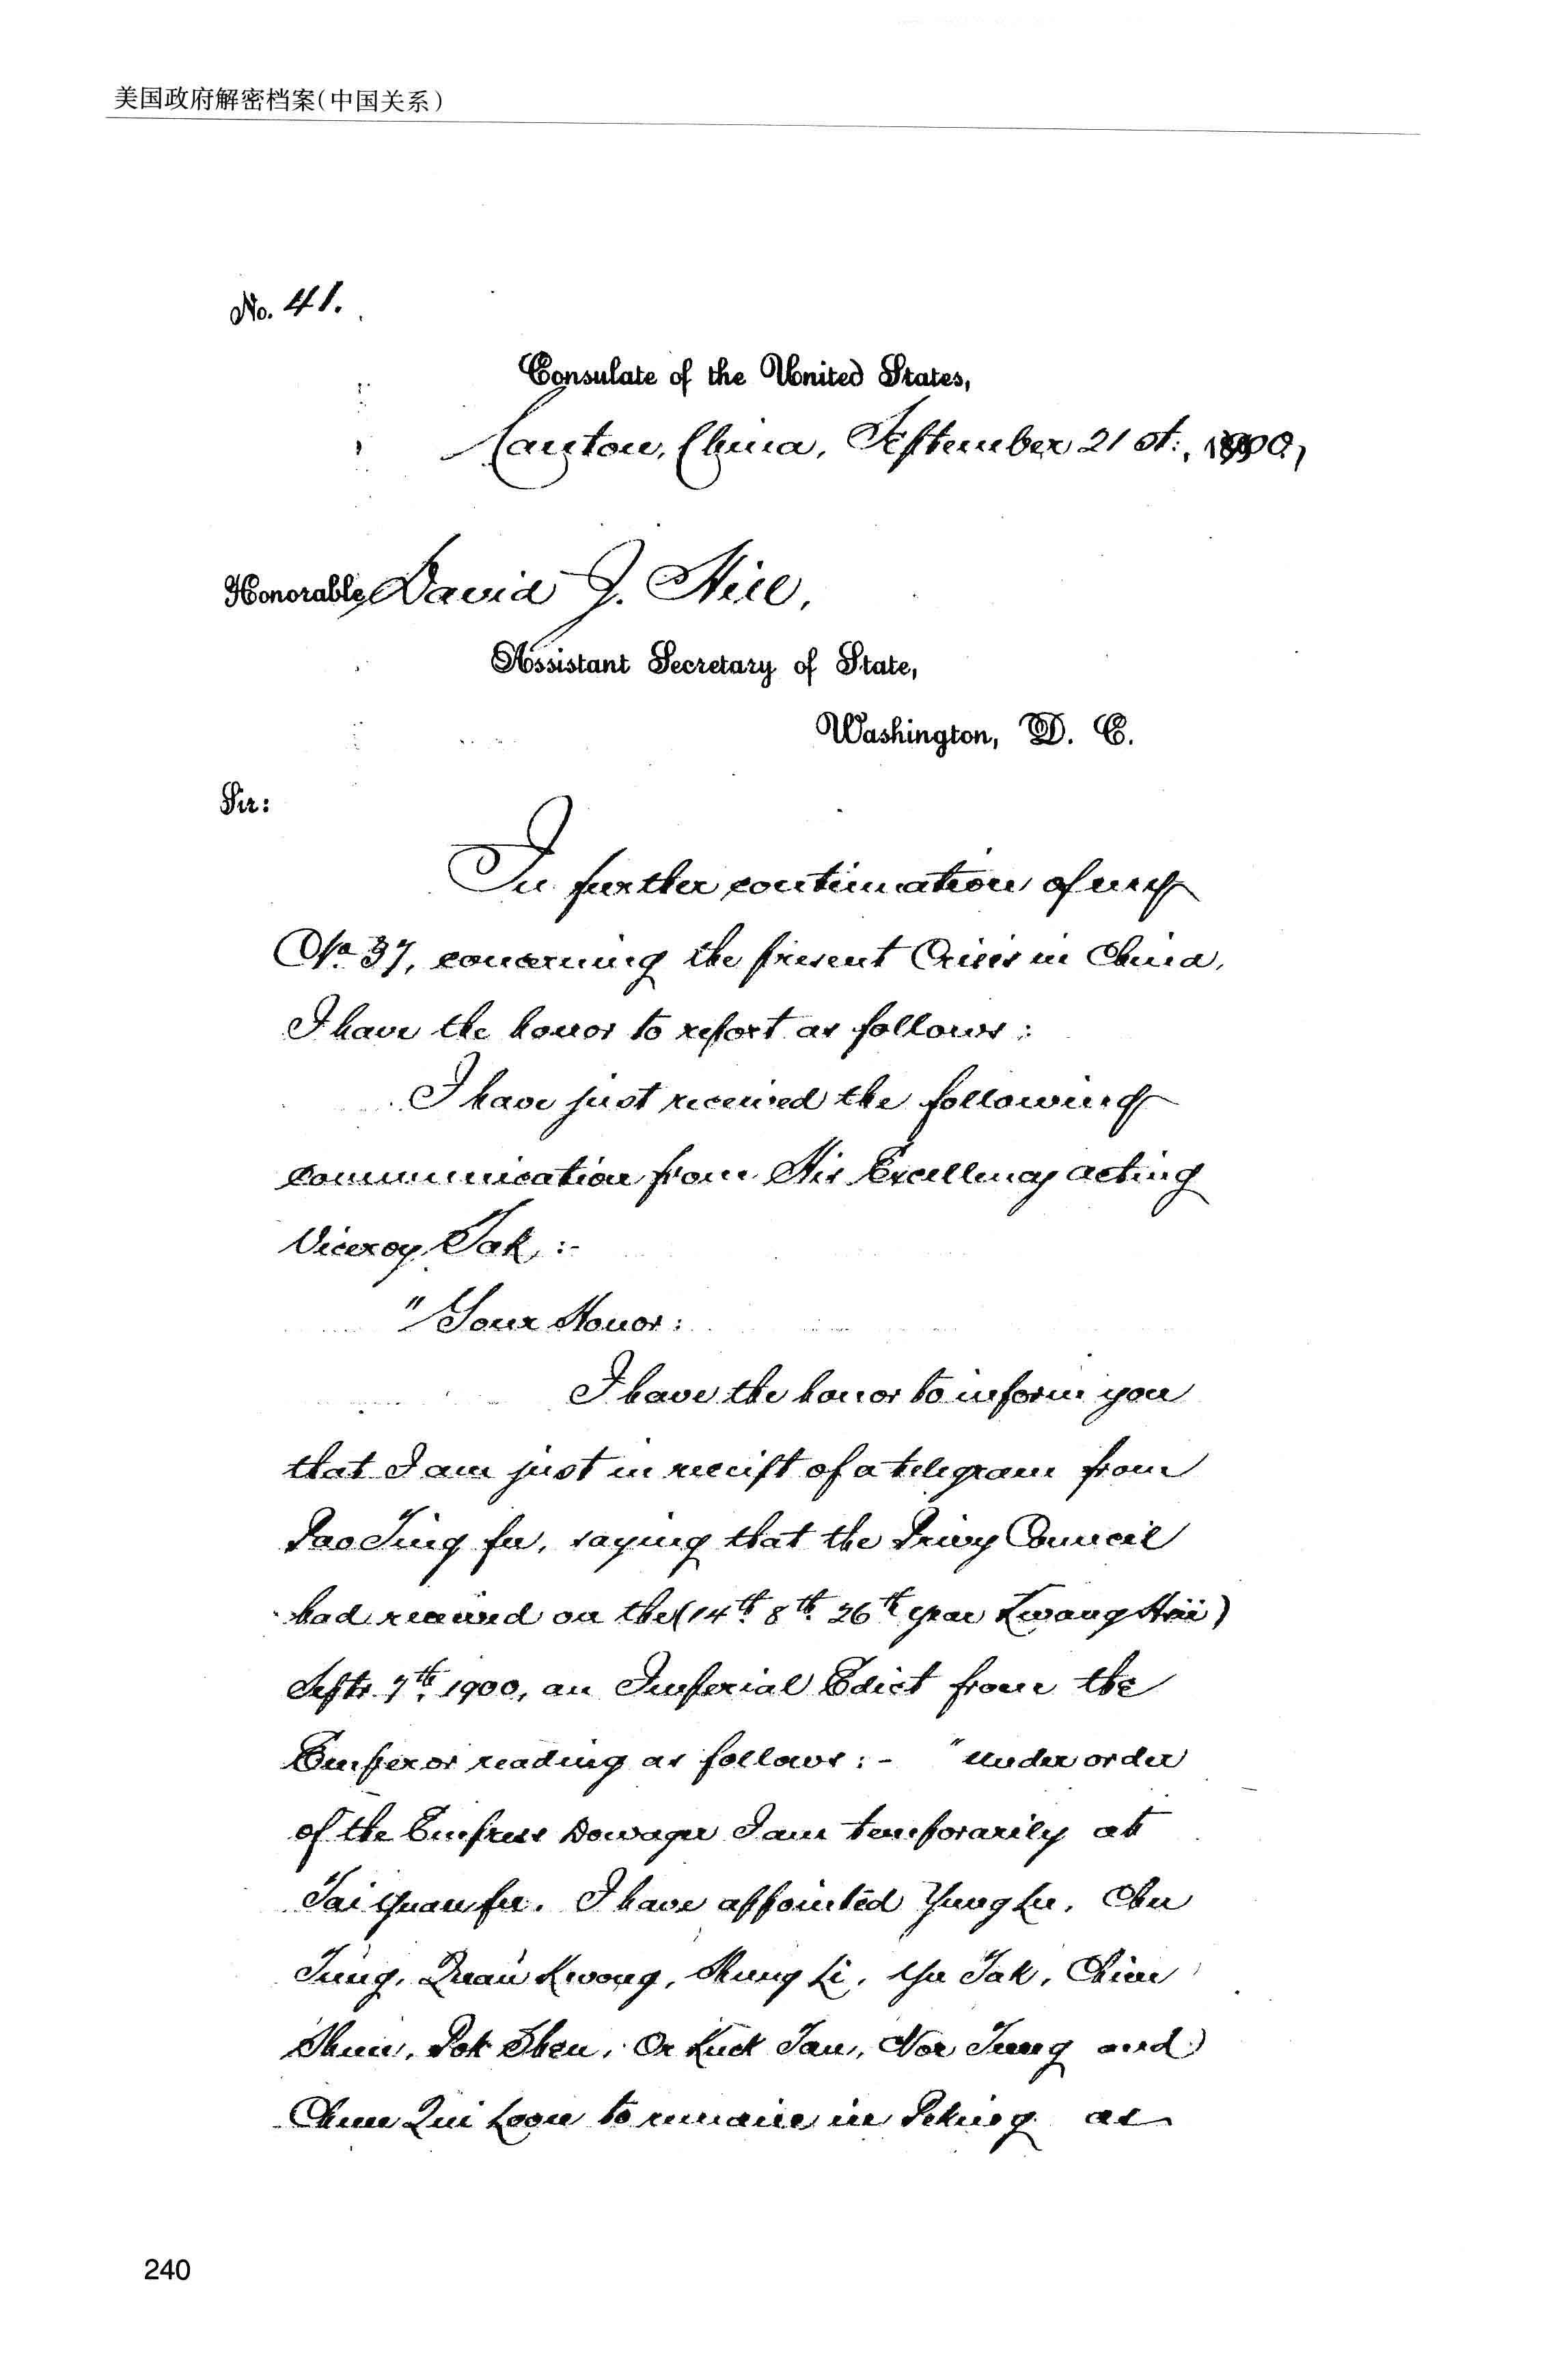 美国政府解密档案(中国关系)
No. 41.
Consulate of the United States,
Canton, China, September 21st:, 1900,
Honorable David J. Hill,
Assistant Secretary of State,
Washington, D. C.
Sir:
In further continuation of my
No 37, concerning the present Crisis in China,
I have the honor to report as follows:
I have just received the following
communication from His Excellency acting
Viceroy Tak:-
"Your Honor:
I have the honor to inform you
that I am just in receipt of a telegram from
Pao Ting fu, saying that the Privy Council
had received on the (14th 8th 26th year Kwang Hsü)
Septr. 7th 1900, an Imperial Edict from the
Emperor reading as follows:- "Under order
of the Empress Dowager I am temporarily at
Tai Yuan fu. I have appointed Yung Lu, Chu
Tung, Quan Kwong, Shung Li, Yu Tak, Chun
Shun, Pok Shen, Or Kuck Tan, Nor Tung and
Chun Qui Loon to remain in Peking as
240